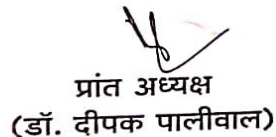 प्रांत अध्यक्ष
(डॉ. दीपक पालीवाल)